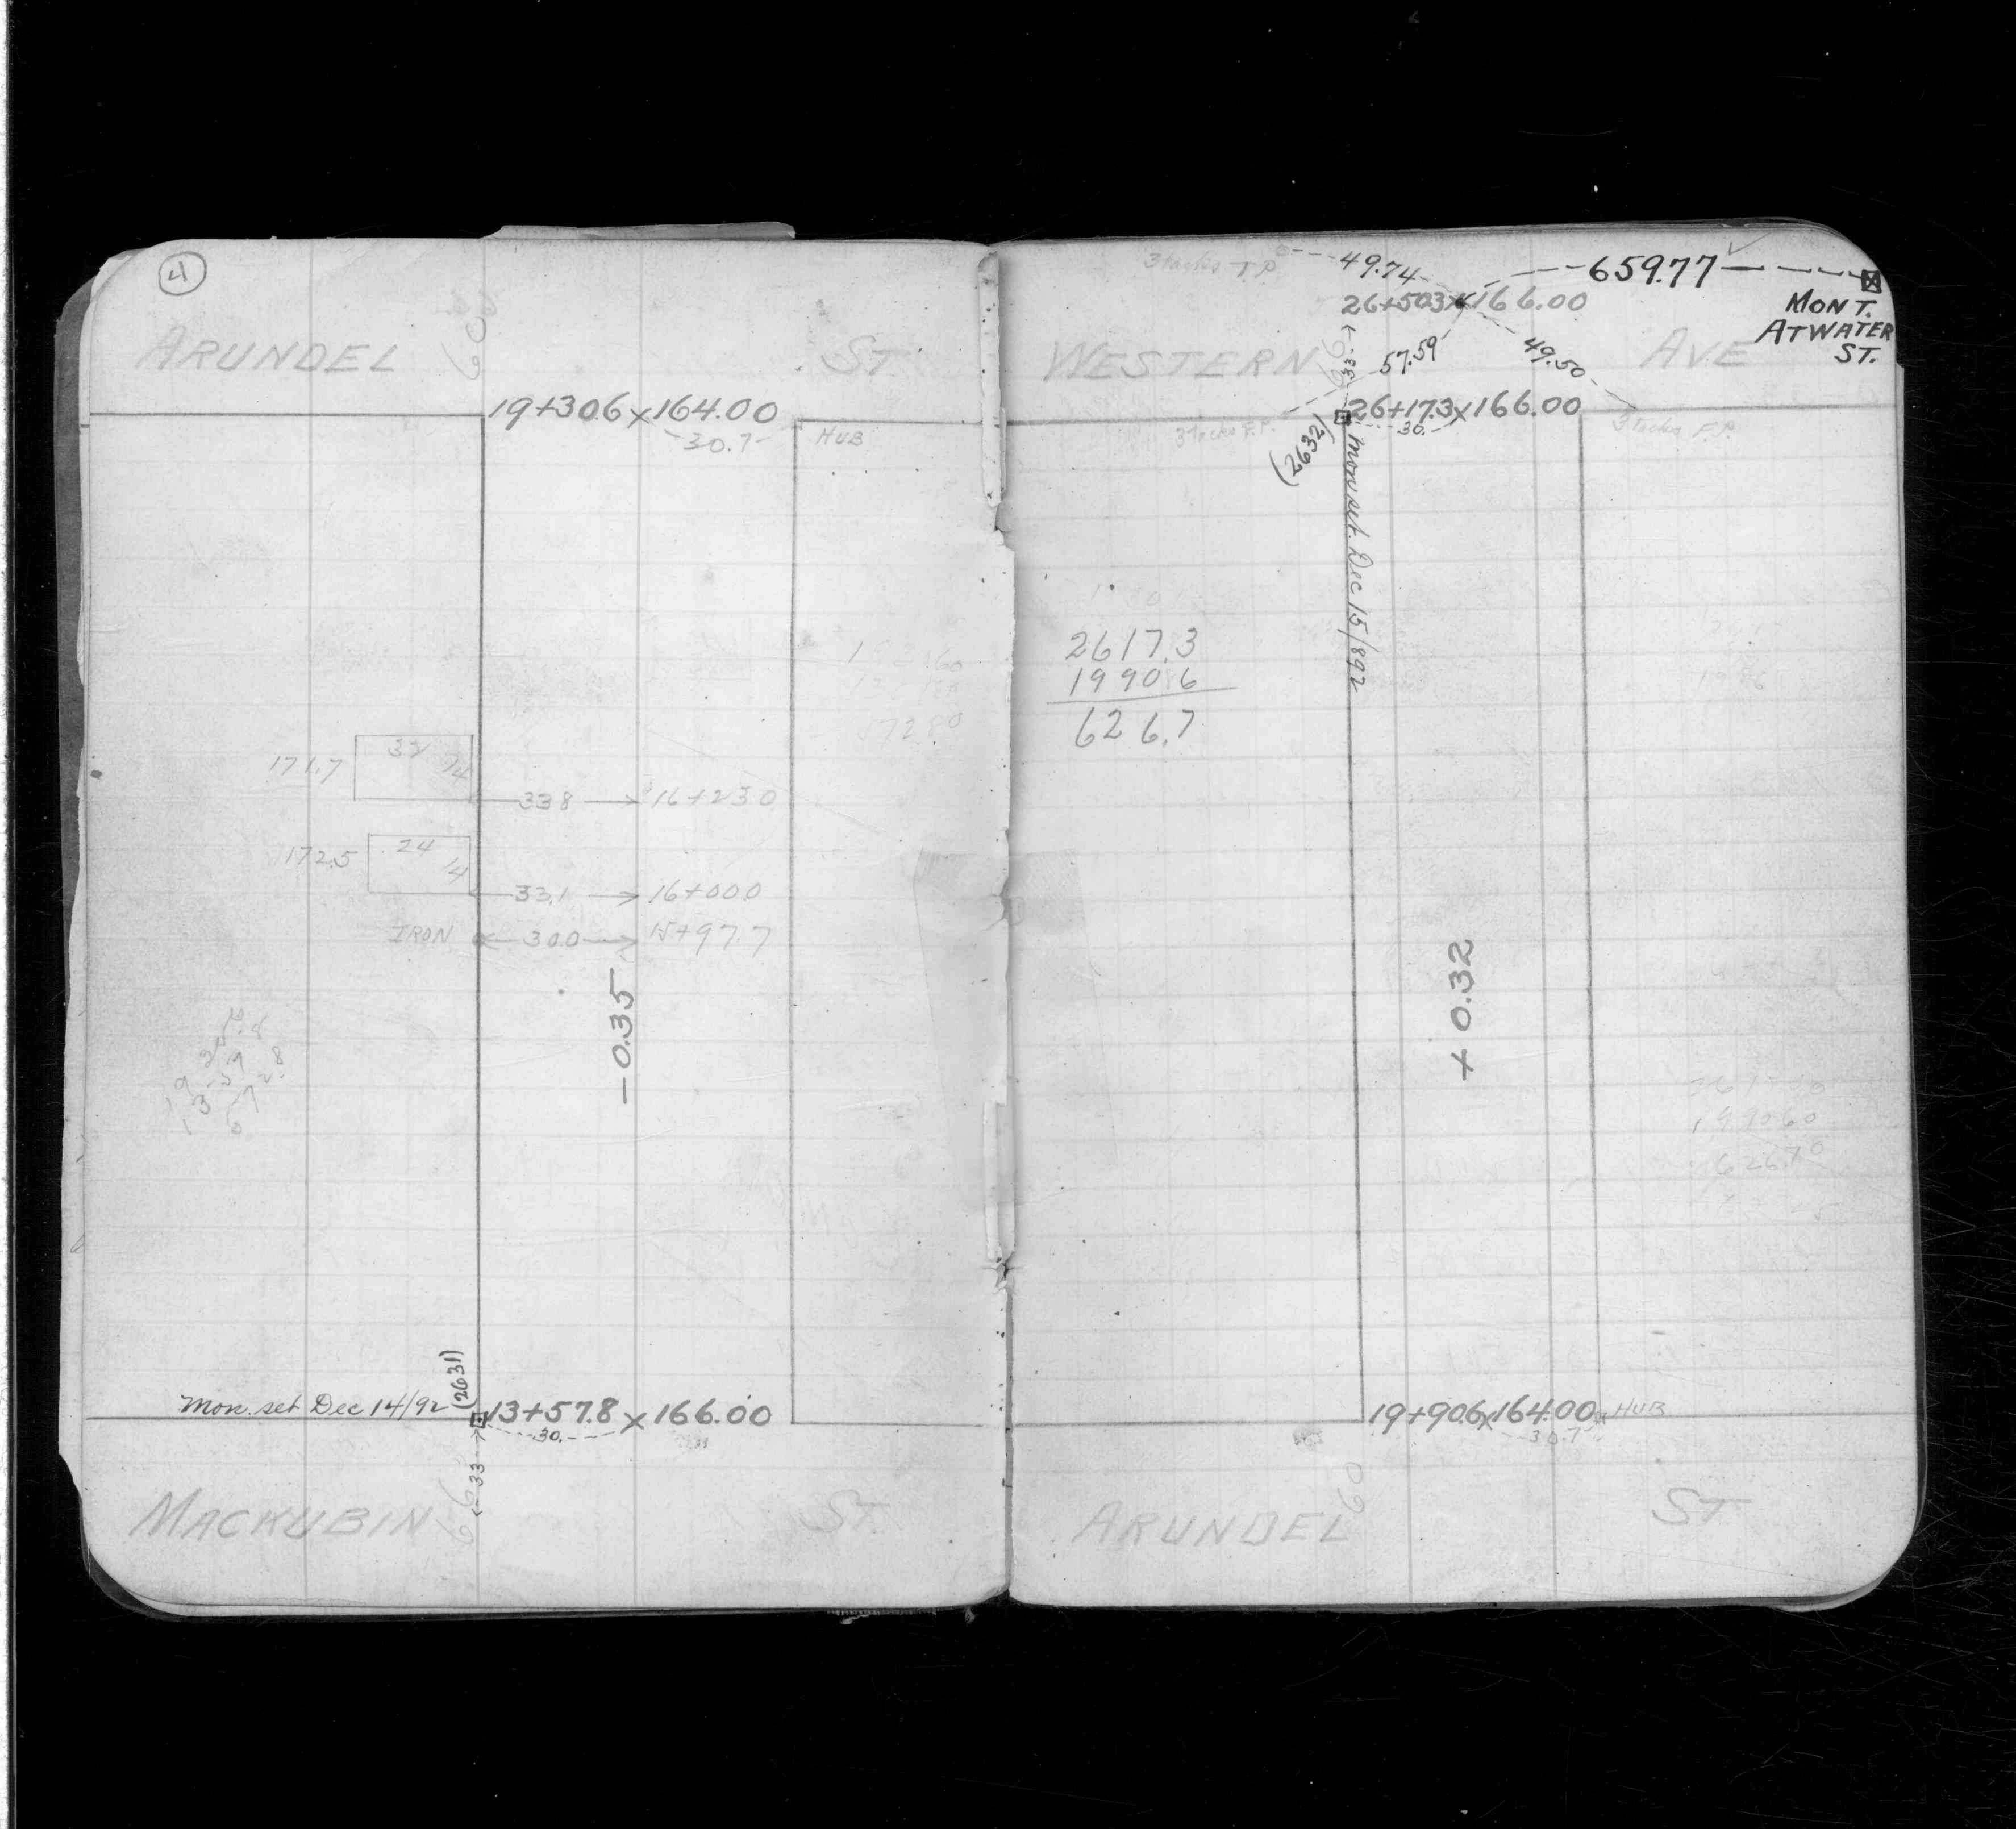 4
ARUNDEL 60 ST.
19+30.6 x 164.00
30.7
HUB
171.7 32 14
33.8 16+23.0
172.5 24 14
33.1 16+00.0
IRON 30.0 15+97.7
-0.35
(2631)
Mon. set Dec 14/92
13+57.8 x 166.00
30.
33
MACKUBIN 66 ST.
3 tacks T.P. 49.74 659.77
26+50.3 x 166.00
MON T.
ATWATER
ST.
WESTERN 66 AVE
33 57.59 49.50
26+17.3 x 166.00
30.
3 Tacks F.P.
3 Tacks F.P.
(2632)
Mon set Dec 15/892
2617.3
1990.6
626.7
+0.32
1990.60
626.70
19+90.6 x 164.00 HUB
30.7
ARUNDEL 60 ST